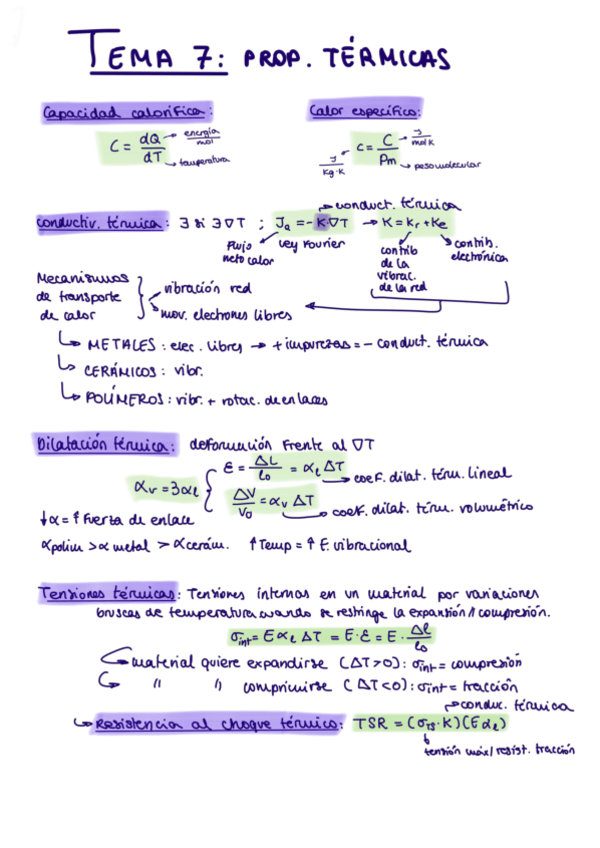 TEMA 7: PROP. TÉRMICAS
Capacidad calorífica:
C = dQ/dT → energía/mol
→ temperatura
Calor específico:
J/kg·K ← c = C/Pm → J/mol K
→ peso molecular
conductiv. térmica: ∃ si ∃ ∇T ; Jq = -K·∇T → K = Kr + Ke
→ conduct. térmica
flujo neto calor
Ley Fourier
contrib de la vibrac. de la red
contrib. electrónica
Mecanismos de transporte de calor
vibración red
mov. electrones libres
↳ METALES: elec. libres → + impurezas = - conduct. térmica
↳ CERÁMICOS: vibr.
↳ POLÍMEROS: vibr. + rotac. de enlaces
Dilatación térmica: deformación frente al ∇T
αv = 3αl
ε = ΔL/l0 = αl ΔT → coef. dilat. térm. lineal
ΔV/V0 = αv ΔT → coef. dilat. térm. volumétrico
↓α = ↑ fuerza de enlace
αpolim > α metal > αcerám. ↑ Temp = ↑ E. vibracional
Tensiones térmicas: Tensiones internas en un material por variaciones
bruscas de temperatura cuando se restringe la expansión // compresión.
σint = E αl ΔT = E·ε = E· Δl/l0
↳ material quiere expandirse (ΔT>0): σint = compresión
↳ " " comprimirse (ΔT<0): σint = tracción
→ conduc. térmica
↳ Resistencia al choque térmico: TSR = (σTS·K)(E αl)
tensión máx/ resist. tracción